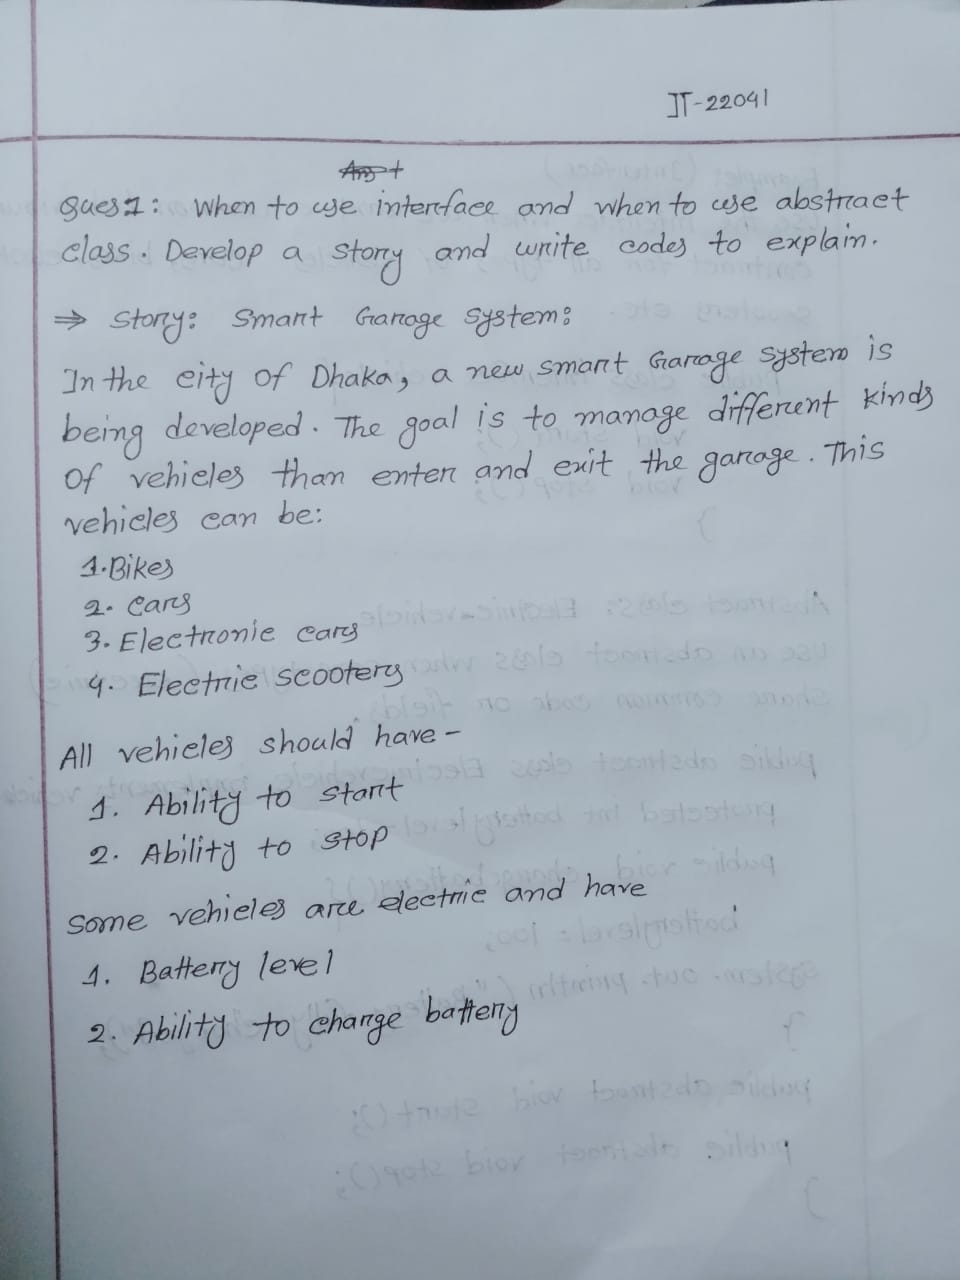 IT-22041
Ques 1: When to use interface and when to use abstract
class. Develop a story and write codes to explain.
⇒ Story: Smart Garage System:
In the city of Dhaka, a new smart Garage system is
being developed. The goal is to manage different kinds
of vehicles than enter and exit the garage. This
vehicles can be:
1. Bikes
2. Cars
3. Electronic cars
4. Electric scooters
All vehicles should have -
1. Ability to start
2. Ability to stop
Some vehicles are electric and have
1. Battery level
2. Ability to charge battery